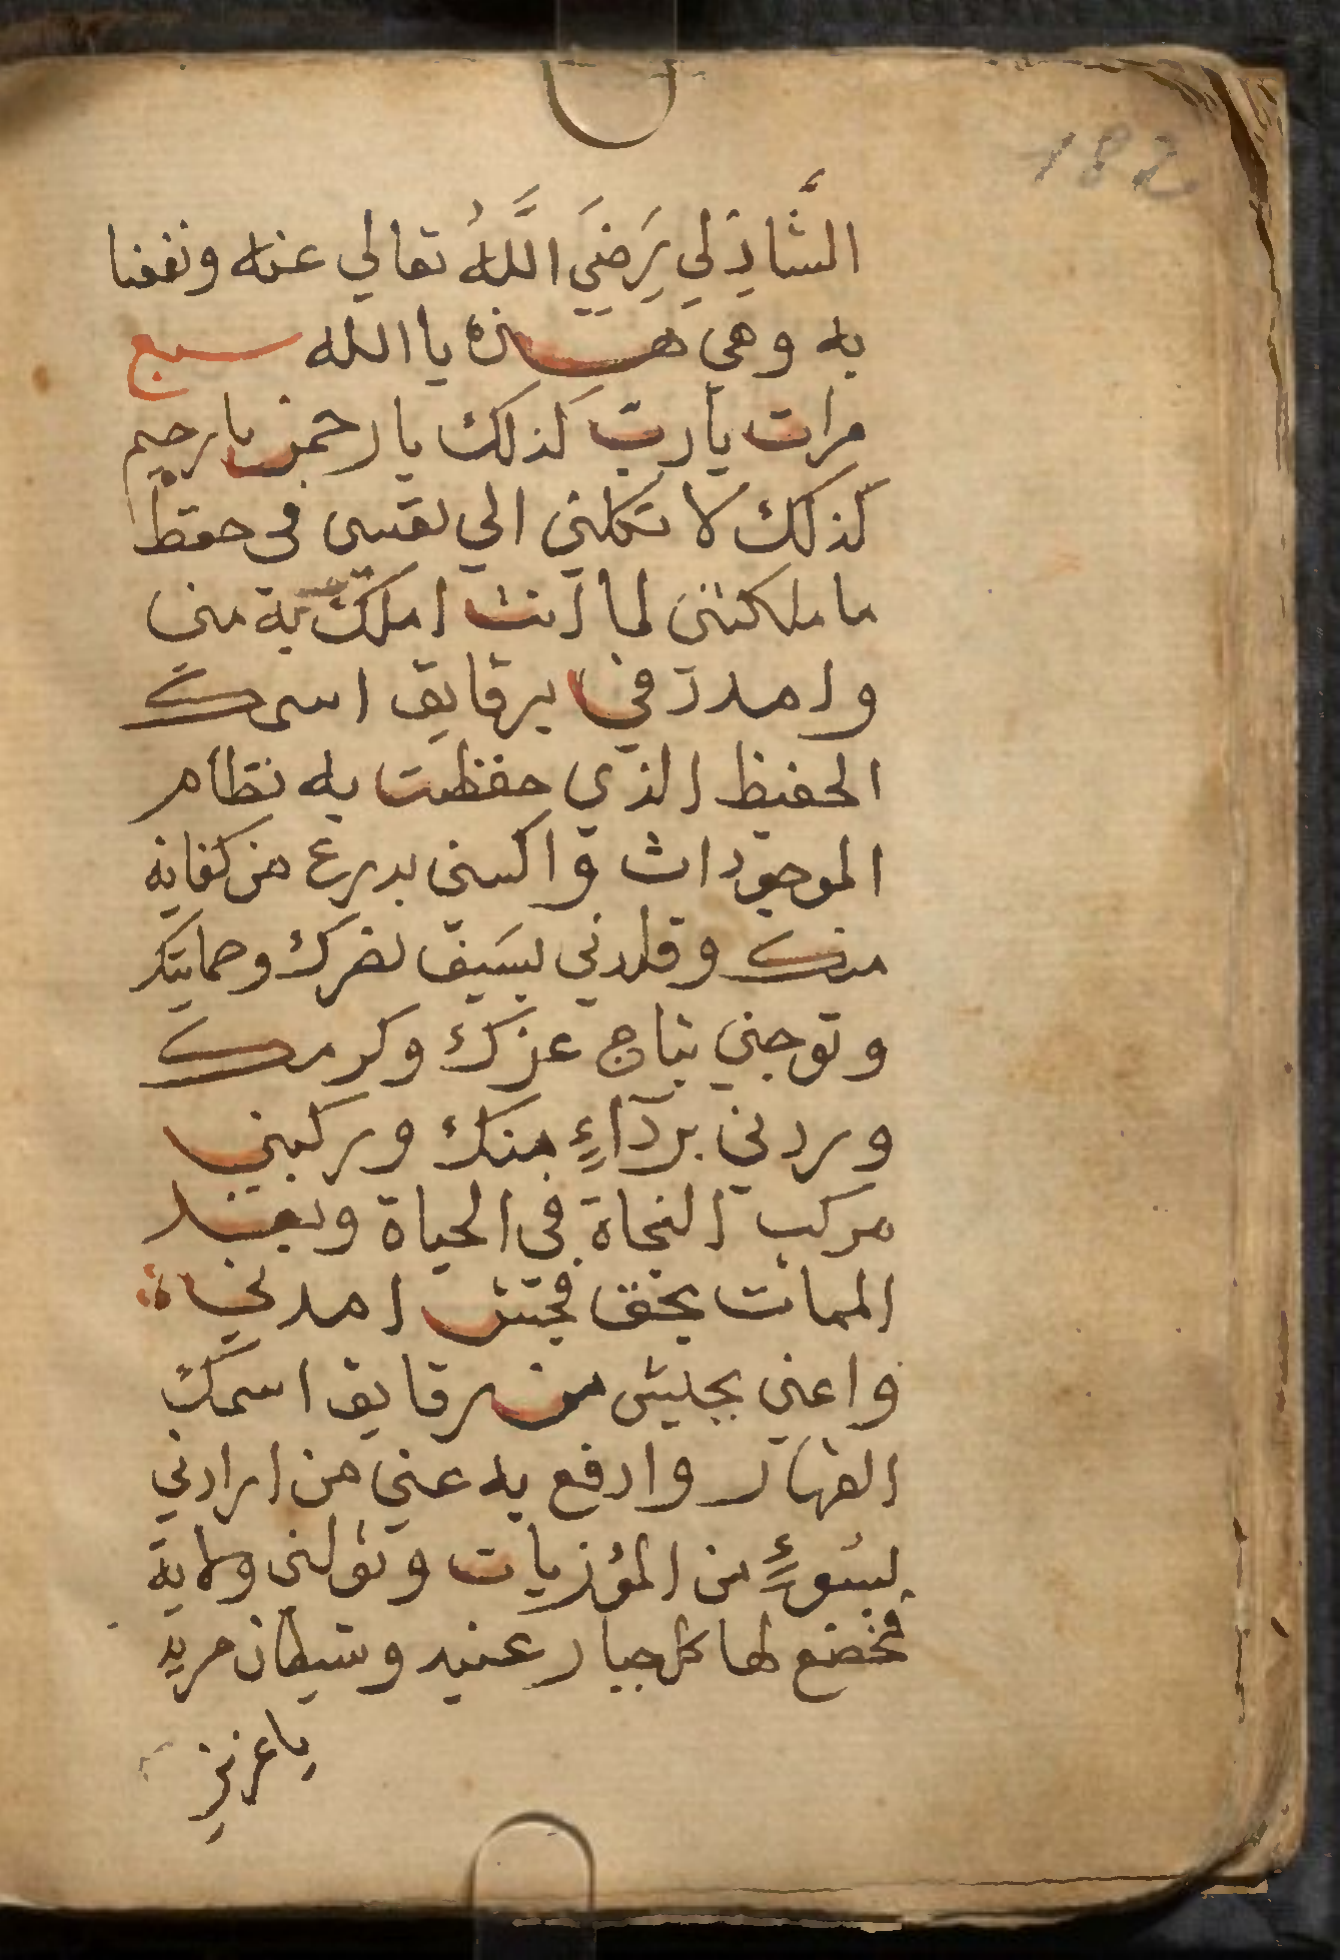 182
الشَّاذِلي رَضِيَ اللَّهُ تعالي عنه ونفعنا
به وهي هذه يا الله سبع
مرات يارب كذلك يا رحمن يا رحيم
كذلك لا تكلني الي نفسي في حفظ
ما ملكتني لما انت املك به مني
وامددني برقايق اسمك
الحفيظ الذي حفظت به نظام
الموجودات واكسني بدرع من كفاية
منك وقلدني بسيف نصرك وحمايتك
وتوجني بتاج عزك وكرمك
وردني برداءٍ منك وركبني
مركب النجاة في الحياة وبعد
الممات بحق فجش امدني
واعني بجيش من رقايق اسمك
القهار وادفع به عني من ارادني
بسوءٍ من المؤذيات وتولني ولاية
تخضع لها كل جبار عنيد وشيطان مريد
ياعزيز